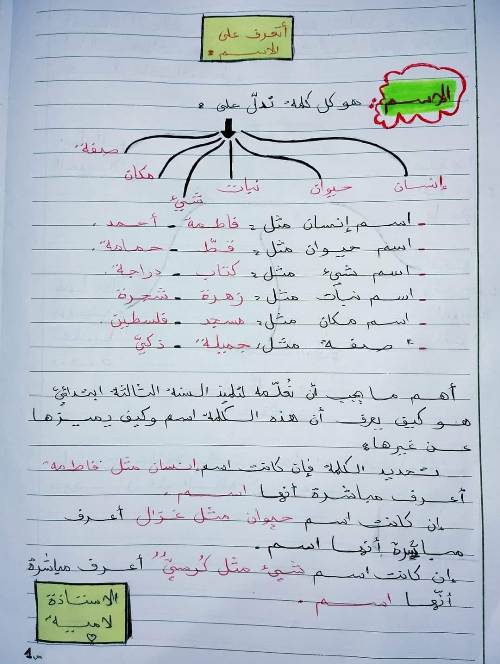 أتعرف على
الاسم.
الاسم: هو كل كلمة تدلّ على:
إنسان حيوان نبات شيئ مكان صفة
- اسم إنسان مثل: فاطمة - أحمد.
- اسم حيوان مثل: قطّ - حمامة.
- اسم شيئ مثل: كتاب - دراجة.
- اسم نبات مثل: زهرة - شجرة
- اسم مكان مثل: مسجد - فلسطين.
- صفة مثل: جميلة - ذكيّ
أهم ما يجب أن نُعلّمه لتلميذ السنة الثالثة ابتدائي
هو كيف يعرف أن هذه الكلمة اسم وكيف يميزها
عن غيرها:
بتحديد الكلمة فإن كانت اسم إنسان مثل فاطمة
أعرف مباشرة أنها اسم.
إن كانت اسم حيوان مثل غزال أعرف
مباشرة أنها اسم.
إن كانت اسم شيئ مثل كُرسيٌّ أعرف مباشرة
أنّها اسم.
الاستاذة
لامية
ص1